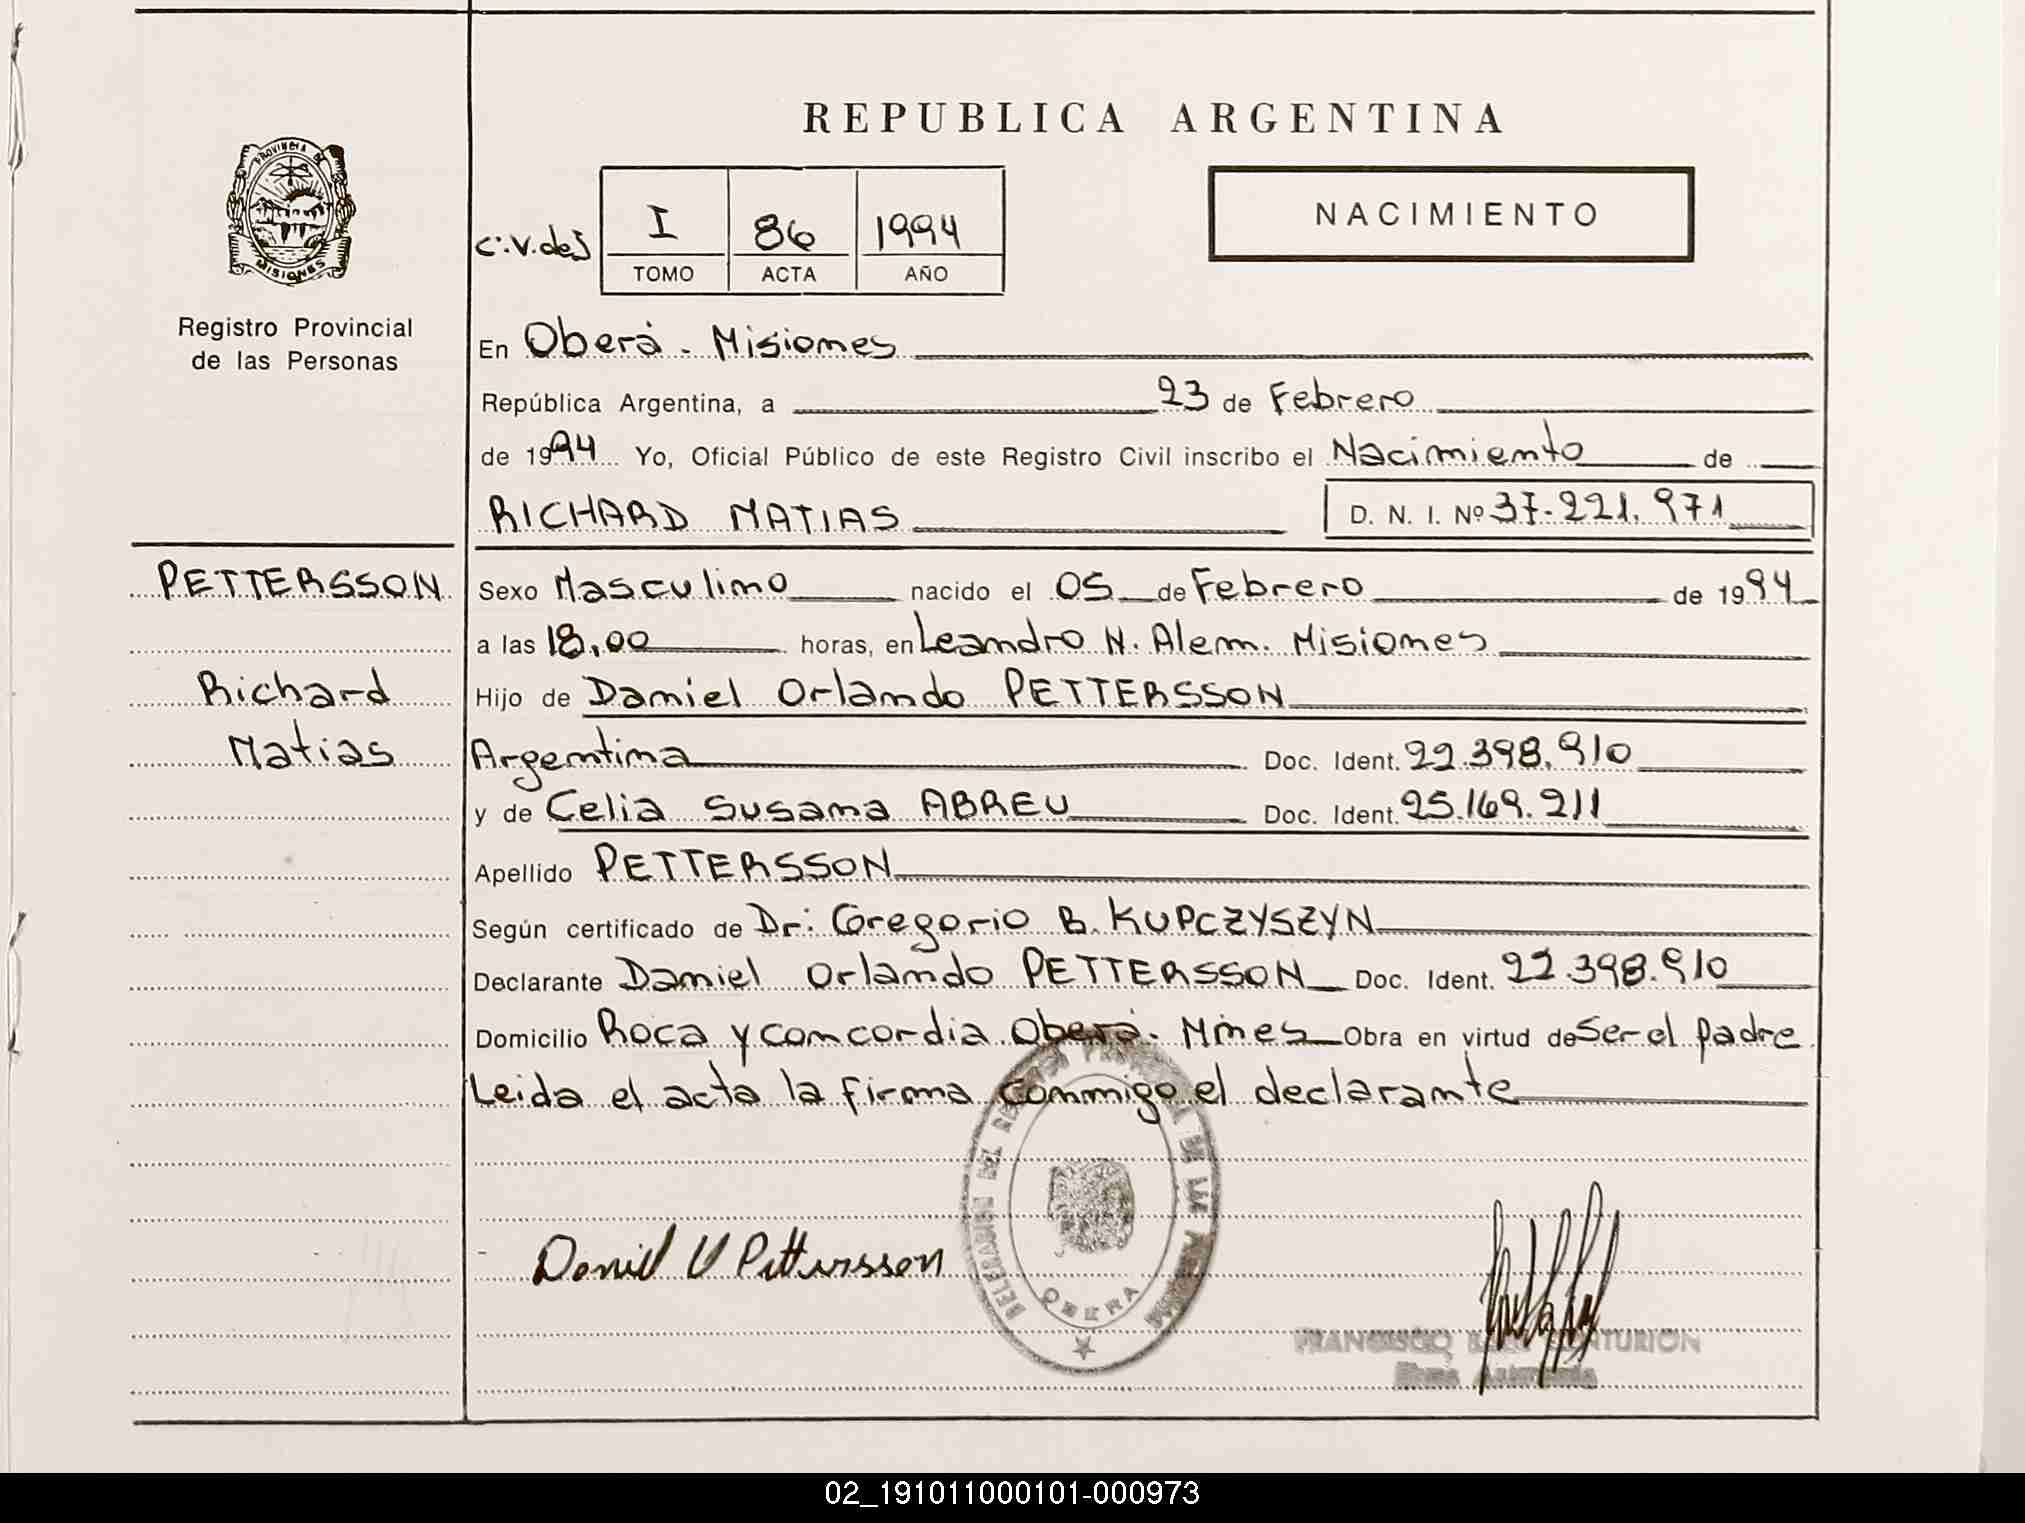 REPUBLICA ARGENTINA
PROVINCIA DE
MISIONES
Registro Provincial
de las Personas
C.V. de J
I 86 1994
TOMO ACTA AÑO
NACIMIENTO
En Oberá - Misiones
República Argentina, a 23 de Febrero
de 1994 Yo, Oficial Público de este Registro Civil inscribo el Nacimiento de
RICHARD MATIAS D. N. I. Nº 37.221.971
PETTERSSON
Richard
Matias
Sexo Masculino nacido el 05 de Febrero de 1994
a las 18,00 horas, en Leandro N. Alem. Misiones
Hijo de Daniel Orlando PETTERSSON
Argentina Doc. Ident. 22.398.910
y de Celia Susana ABREU Doc. Ident. 25.169.211
Apellido PETTERSSON
Según certificado de Dr: Gregorio B. KUPCZYSZYN
Declarante Daniel Orlando PETTERSSON Doc. Ident. 22.398.910
Domicilio Roca y concordia. Oberá - Mnes Obra en virtud de Ser el padre
Leida el acta la firma conmigo el declarante
DELEGACION DEL REGISTRO PROVINCIAL DE LAS PERSONAS
OBERA
Daniel O Pettersson
FRANCISCO CENTURION
Firma Autorizada
02_191011000101-000973